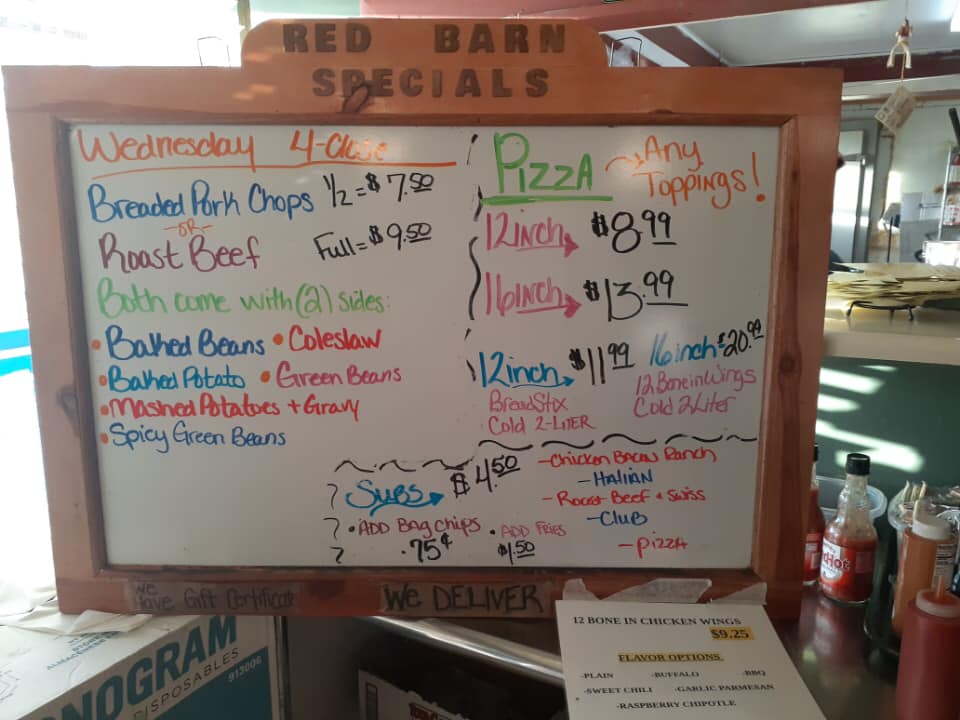 RED BARN
SPECIALS
Wednesday 4-Close
Breaded Pork Chops 1/2 = $7.50
-OR-
Roast Beef Full = $9.50
Both come with (2) sides:
• Baked Beans • Coleslaw
• Baked Potato • Green Beans
• Mashed Potatoes + Gravy
• Spicy Green Beans
Pizza → Any Toppings!
12inch → $8.99
16inch → $13.99
12inch → $11.99
BreadStix
Cold 2-LITER
16inch $20.99
12 Bone in Wings
Cold 2 Liter
Subs → $4.50
• ADD Bag Chips .75¢
• ADD Fries $1.50
- Chicken Bacon Ranch
- Italian
- Roast Beef + Swiss
- Club
- Pizza
We
Have Gift Certificate
We DELIVER
12 BONE IN CHICKEN WINGS
$9.25
FLAVOR OPTIONS
-PLAIN -BUFFALO -BBQ
-SWEET CHILI -GARLIC PARMESAN
-RASPBERRY CHIPOTLE
NOGRAM
DISPOSABLES
913006